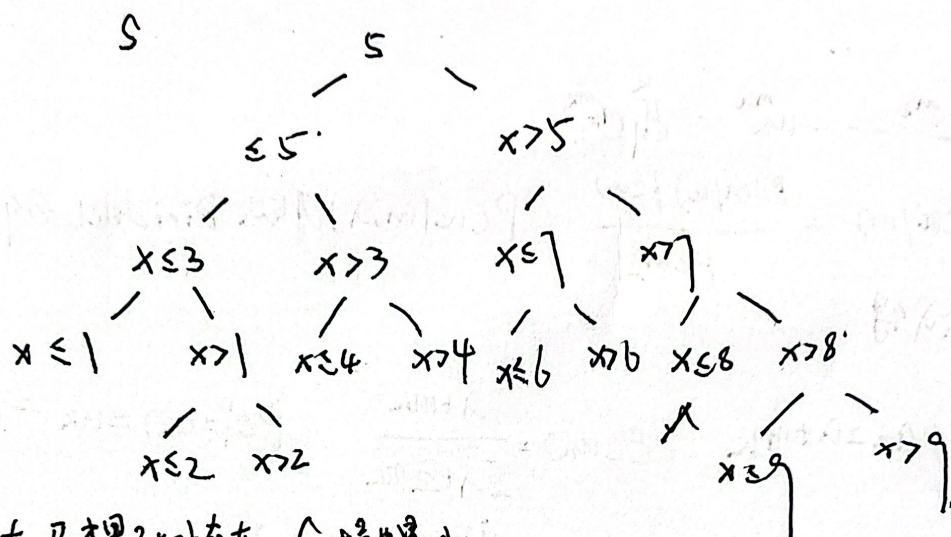 S 5
≤5 x>5
x≤3 x>3 x≤7 x>7
x≤1 x>1 x≤4 x>4 x≤6 x>6 x≤8 x>8
x≤2 x>2 x≤9 x>9